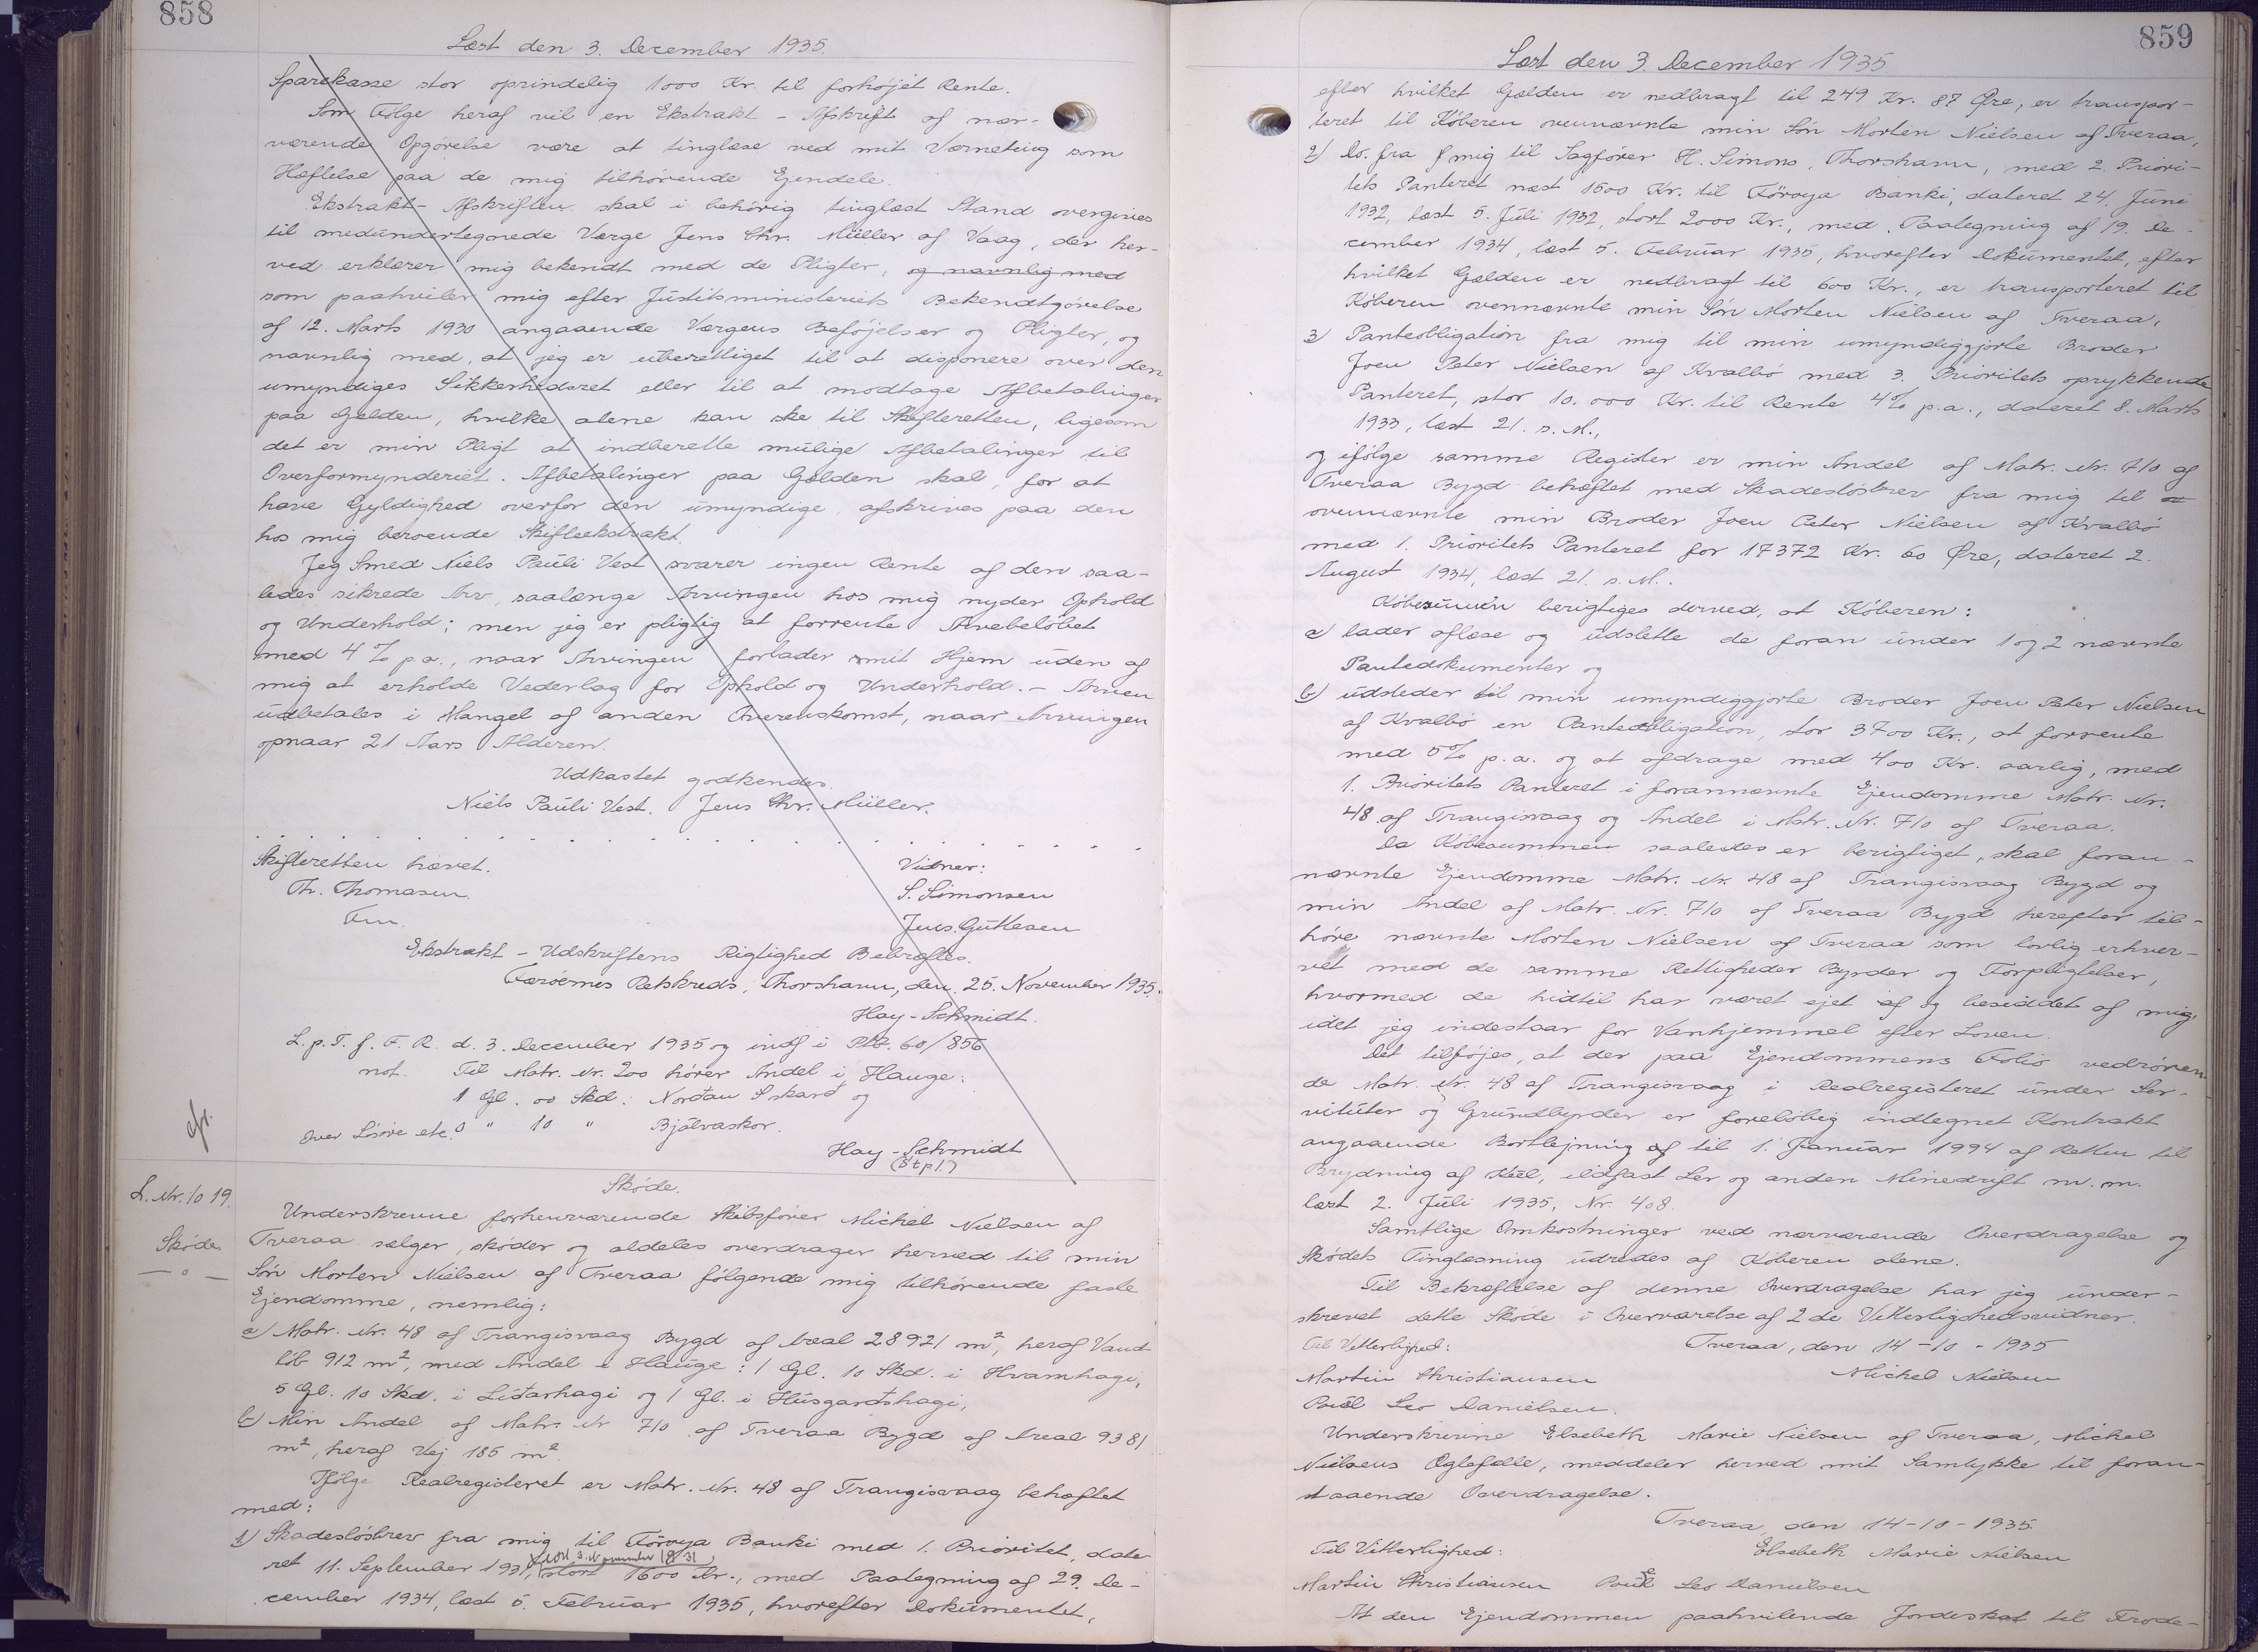 858
Læst den 3. December 1935.
Sparekasse stor oprindelig 1000 Kr. til forhøjet Rente.
Som Følge heraf vil en Ekstrakt-Afskrift af nær-
værende Opgørelse være at tinglæse ved mit Værneting som
Hæftelse paa de mig tilhørende Ejendele.
Ekstrakt-Afskriften skal i behørig tinglæst Stand overgives
til medundertegnede Værge Jens Chr. Müller af Vaag, der her-
ved erklærer mig bekendt med de Pligter, og navnlig med
som paahviler mig efter Justitsministeriets Bekendtgørelse
af 12. Marts 1930 angaaende Værgens Beføjelser og Pligter, og
navnlig med, at jeg er uberettiget til at disponere over den
umyndiges Sikkerhedsret eller til at modtage Afbetalinger
paa Gælden, hvilke alene kan ske til Skifteretten, ligesom
det er min Pligt at indberette mulige Afbetalinger til
Overformynderiet. Afbetalinger paa Gælden skal, for at
have Gyldighed overfor den umyndige, afskrives paa den
hos mig beroende Skifteekstrakt.
Jeg Smed Niels Pauli Vest svarer ingen Rente af den saa-
ledes sikrede Arv, saalænge Arvingen hos mig nyder Ophold
og Underhold; men jeg er pligtig at forrente Arvebeløbet
med 4 % p.a., naar Arvingen forlader mit Hjem uden af
mig at erholde Vederlag for Ophold og Underhold. - Arven
udbetales i Mangel af anden Overenskomst, naar Arvingen
opnaar 21 Aars Alderen.
Udkastet godkendes.
Niels Pauli Vest. Jens Chr. Müller.
Skifteretten hævet.
Vidner:
Th. Thomasen
S. Simonsen
Fm.
Jens. Guttesen
Ekstrakt-Udskriftens Rigtighed Bekræftes.
Færøernes Retskreds, Thorshavn, den 25. November 1935.
Hay-Schmidt.
L. p. T. f. F. R. d. 3. December 1935 og indf i Ptb. 60/856
not. Til Matr. Nr. 200 hører Andel i Hauge:
1 Gl. 00 Skd: Norðan Skarð og
over Lisøre etc. 0 " 10 " Bjálvaskor.
Hay-Schmidt
(Stpl.)
cfr.
L. Nr. 1019.
Skøde
— o —
Skøde.
Underskrevne forhenværende Skibsfører Michel Nielsen af
Tveraa sælger, skøder og aldeles overdrager herved til min
Søn Morten Nielsen af Tveraa følgende mig tilhørende faste
Ejendomme, nemlig:
a) Matr. Nr. 48 af Trangisvaag Bygd af Areal 28921 m², heraf Vand-
løb 912 m², med Andel i Hauge: 1 Gl. 10 Skd. i Hvamhagi,
5 Gl. 10 Skd. i Liðarhagi og 1 Gl. i Húsgarðshagi,
b) Min Andel af Matr. Nr 710 af Tveraa Bygd af Areal 9381
m², heraf Vej 185 m².
Ifølge Realregisteret er Matr. Nr. 48 af Trangisvaag behæftet
med:
1) Skadesløsbrev fra mig til Föroya Banki med 1. Prioritet, date-
ret 11. September 1931, stort 1600 Kr., med Paategning af 29. De-
x læst 3. November 1931
cember 1934, læst 5. Februar 1935, hvorefter Dokumentet,
859
Læst den 3. December 1935
efter hvilket Gælden er nedbragt til 249 Kr. 87 Øre, er transpor-
teret til Køberen ovennævnte min Søn Morten Nielsen af Tveraa,
2) Do. fra mig til Sagfører H. Simons, Thorshavn, med 2. Priori-
tets Panteret næst 1500 Kr. til Föroya Banki, dateret 24. Juni
1932, læst 5. Juli 1932, stort 2000 Kr., med Paategning af 19. De-
cember 1934, læst 5. Februar 1935, hvorefter Dokumentet, efter
hvilket Gælden er nedbragt til 600 Kr., er transporteret til
Køberen ovennævnte min Søn Morten Nielsen af Tveraa,
3) Panteobligation fra mig til min umyndiggjorte Broder
Joen Peter Nielsen af Kvalbø med 3. Prioritets oprykkende
Panteret, stor 10.000 Kr. til Rente 4% p.a., dateret 8. Marts
1933, læst 21. s. M.,
og ifølge samme Register er min Andel af Matr. Nr. 710 af
Tveraa Bygd behæftet med Skadesløsbrev fra mig til
ovennævnte min Broder Joen Peter Nielsen af Kvalbø
med 1. Prioritets Panteret for 17372 Kr. 60 Øre, dateret 2.
August 1934, læst 21. s. M..
Købesummen berigtiges derved, at Køberen:
a) lader aflæse og udslette de foran under 1 og 2 nævnte
Pantedokumenter og
b) udsteder til min umyndiggjorte Broder Joen Peter Nielsen
af Kvalbø en Panteobligation, stor 3700 Kr., at forrente
med 5% p.a. og at afdrage med 400 Kr. aarlig, med
1. Prioritets Panteret i forannævnte Ejendomme Matr. Nr.
48 af Trangisvaag og Andel i Matr. Nr. 710 af Tveraa.
Da Købesummen saaledes er berigtiget, skal foran-
nævnte Ejendomme Matr. Nr. 48 af Trangisvaag Bygd og
min Andel af Matr. Nr. 710 af Tveraa Bygd herefter til-
høre nævnte Morten Nielsen af Tveraa som lovlig erhver-
vet med de samme Rettigheder Byrder og Forpligtelser,
hvormed de hidtil har været ejet af og besiddet af mig,
idet jeg indestaar for Vanhjemmel efter Loven.
Det tilføjes, at der paa Ejendommens Folio vedrøren-
de Matr. Nr. 48 af Trangisvaag i Realregisteret under Ser-
vituter og Grundbyrder er foreløbig indtegnet Kontrakt
angaaende Bortlejning af til 1. Januar 1994 af Retten til
Brydning af Kul, ildfast Ler og anden Minedrift m. m.
læst 2. Juli 1935, Nr. 408.
Samtlige Omkostninger ved nærværende Overdragelse og
Skødets Tinglæsning udredes af Køberen alene.
Til Bekræftelse af denne Overdragelse har jeg under-
skrevet dette Skøde i Overværelse af 2 de Vitterlighedsvidner.
Til Vitterlighed:
Tveraa, den 14-10-1935
Martin Christiansen
Michel Nielsen
Poul Leo Danielsen.
Underskrevne Elsebeth Marie Nielsen af Tveraa, Michel
Nielsens Ægtefælle, meddeler herved mit Samtykke til foran-
staaende Overdragelse.
Tveraa, den 14-10-1935.
Til Vitterlighed:
Elsebeth Marie Nielsen
Martin Christiansen Poul Leo Danielsen
At den Ejendommen paahvilende Jordeskat til Frode-